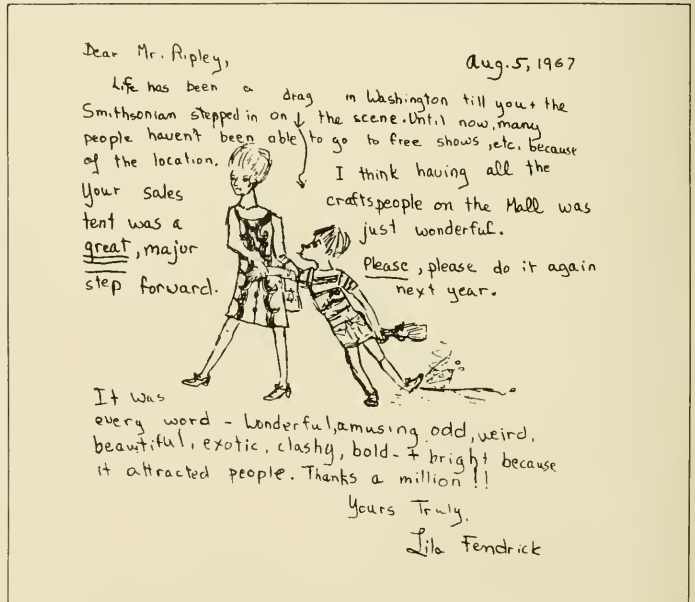 Dear Mr. Ripley,
Aug. 5, 1967
Life has been a drag in Washington till you + the
Smithsonian stepped in on ↓ the scene. Until now, many
people haven't been able to go to free shows, etc. because
of the location.
Your sales
tent was a
great, major
step forward.
I think having all the
craftspeople on the Mall was
just wonderful.
Please, please do it again
next year.
It was
every word - Wonderful, amusing, odd, weird,
beautiful, exotic, clashy, bold - + bright because
it attracted people. Thanks a million!!
Yours Truly,
Lila Fendrick